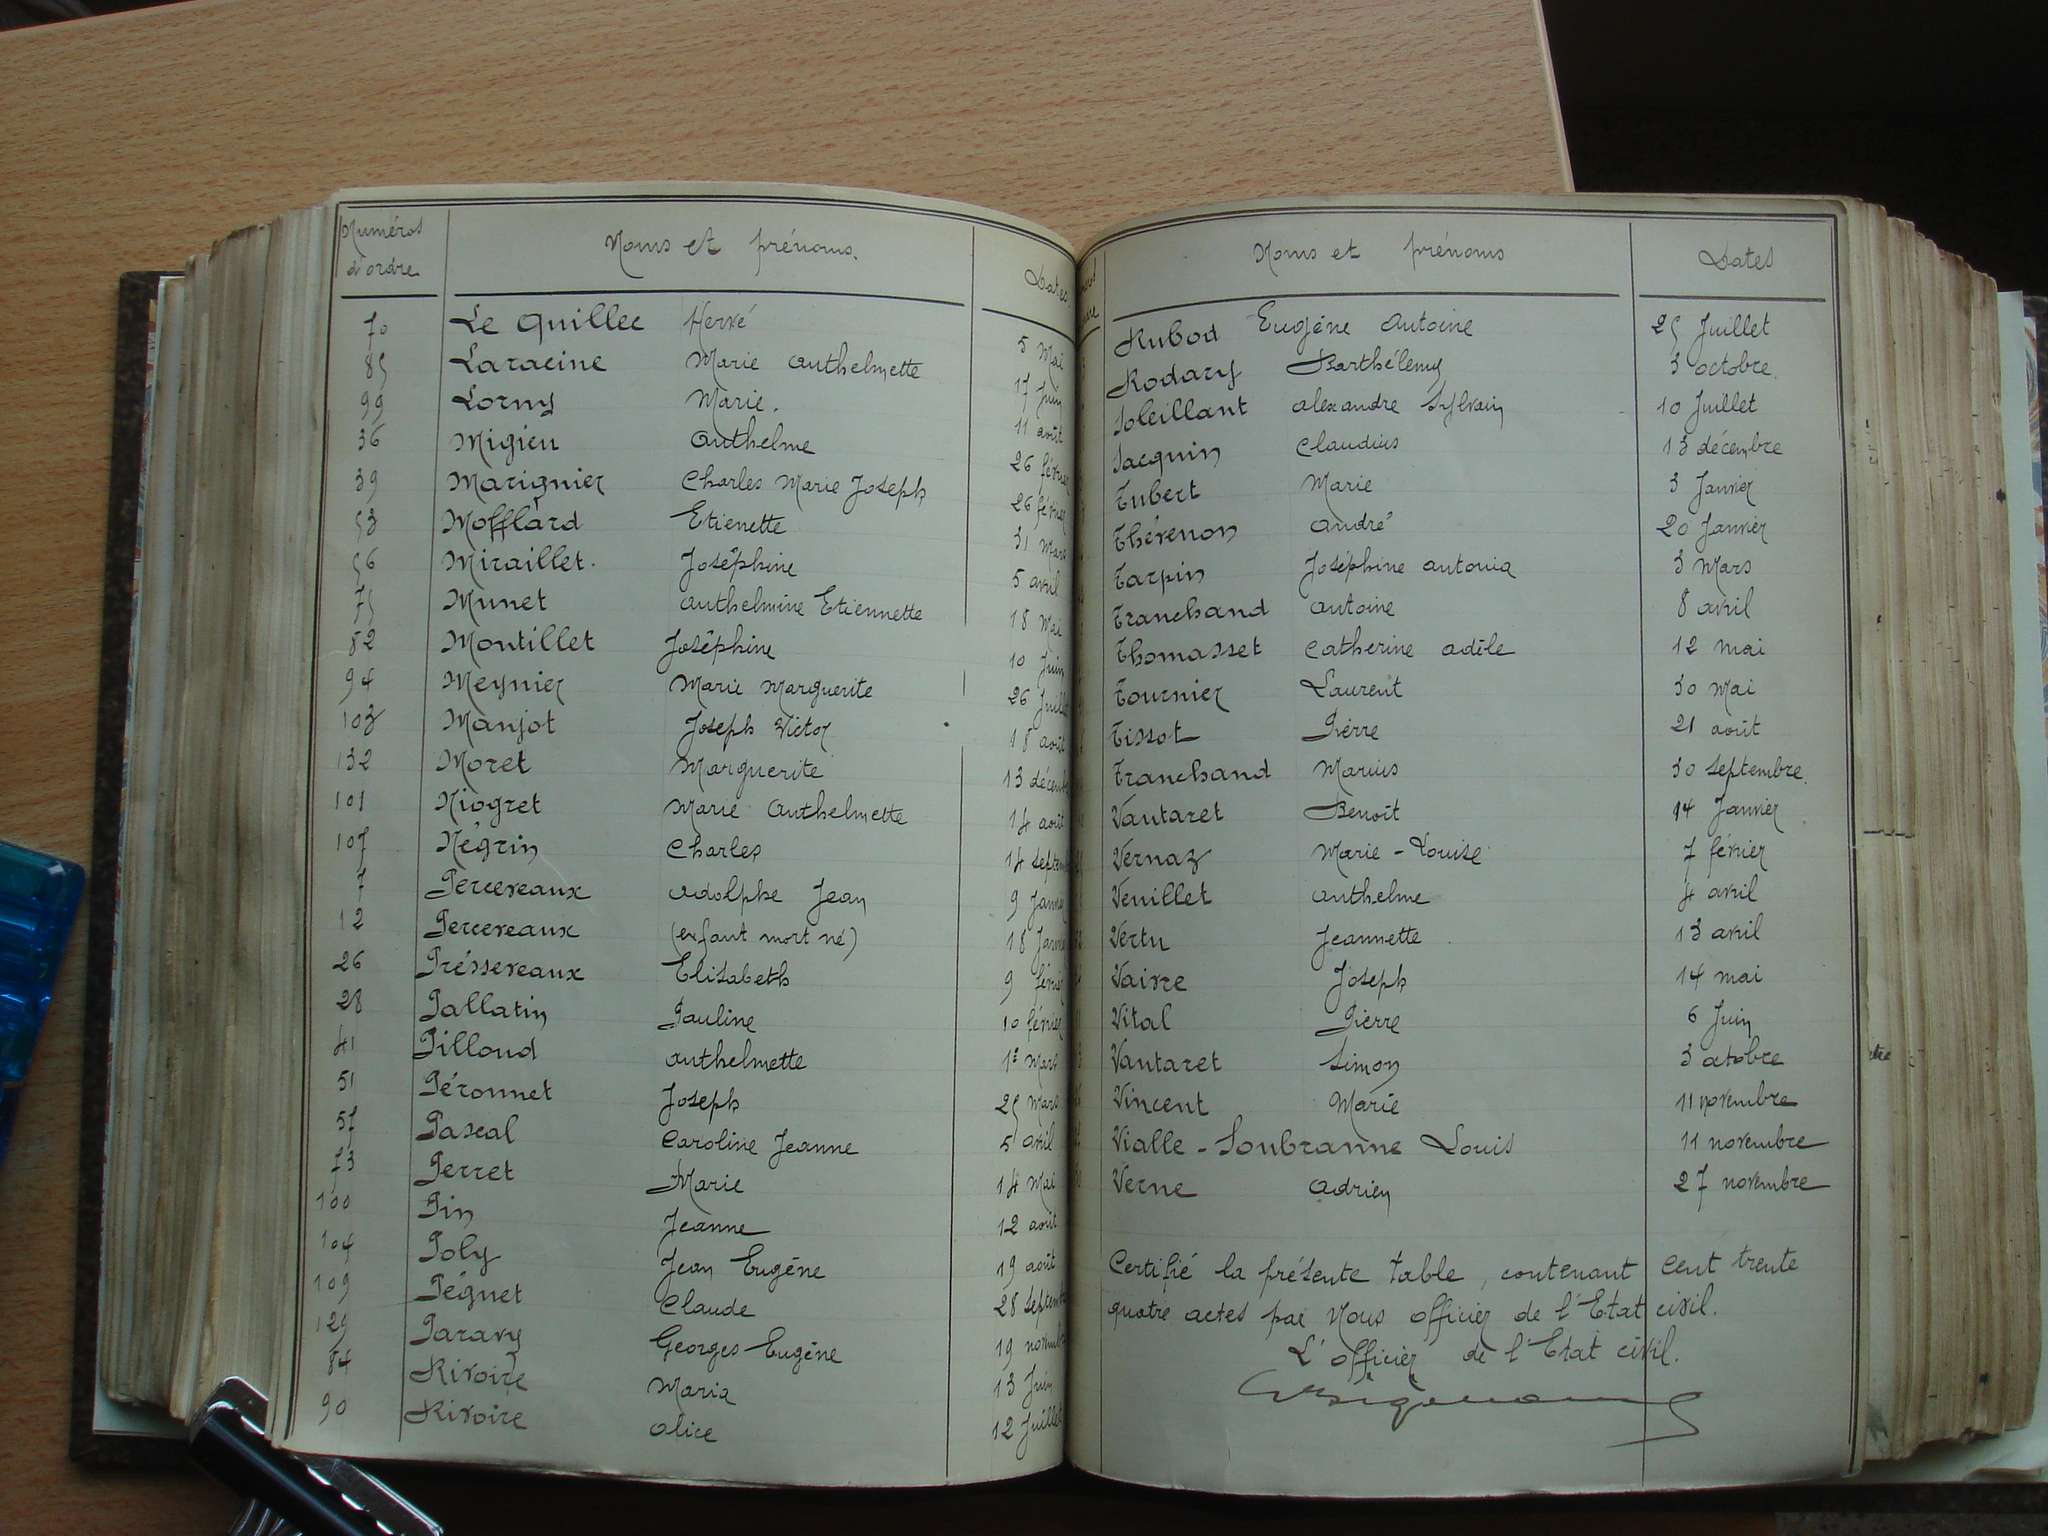 Numéros d'ordre Noms et prénoms. Dates
70 Le Quillec Hervé 5 Mai
85 Laracine Marie Anthelmette 17 Juin
99 Lorny Marie. 11 août
36 Migieu Anthelme 26 février
39 Marignier Charles Marie Joseph 26 février
53 Mofflard Etienette 31 Mars
56 Miraillet. Joséphine 5 avril
75 Munet Anthelmine Etiennette 18 Mai
82 Montillet Joséphine 10 Juin
94 Meynier Marie Marguerite 26 Juillet
103 Manjot Joseph Victor 18 août
132 Moret Marguerite 13 décemb
101 Niogret Marie Anthelmette 14 août
107 Négrin Charles 14 septem
7 Percereaux Adolphe Jean 9 Janvier
12 Percereaux (enfant mort né) 18 Janvie
26 Préssereaux Elisabeth 9 février
28 Pallatin Pauline 10 février
41 Pilloud Anthelmette 1er Mars
51 Péronnet Joseph 25 Mars
57 Pascal Caroline Jeanne 5 avril
73 Perret Marie 14 Mai
100 Pin Jeanne 12 août
104 Poly Jean Eugène 19 août
109 Pégnet Claude 28 septemb
129 Paravy Georges Eugène 19 novemb
84 Rivoire Maria 13 Juin
90 Rivoire Alice 12 Juillet
Noms et prénoms Dates
Rubod Eugène Antoine 25 Juillet
Rodary Barthélemy 3 octobre.
Soleillant Alexandre Sylvain 10 Juillet
Jacquin Claudius 13 décembre
Tubert Marie 3 Janvier
Thévenon André 20 Janvier
Tarpin Joséphine Antonia 3 Mars
Tranchand Antoine 8 avril
Thomasset Catherine Adèle 12 mai
Tournier Laurent 30 Mai
Tissot Pierre 21 août
Tranchand Marius 30 septembre.
Vantaret Benoît 14 Janvier
Vernaz Marie-Louise 7 février
Veuillet Anthelme 4 avril
Vertu Jeannette 13 avril
Vairre Joseph 14 mai
Vital Pierre 6 Juin
Vantaret Simon 3 octobre
Vincent Marie 11 novembre
Vialle-Soubranne Louis 11 novembre
Verne Adrien 27 novembre
Certifié la présente table, contenant cent trente
quatre actes par Nous officier de l'Etat civil.
L'officier de l'Etat civil.